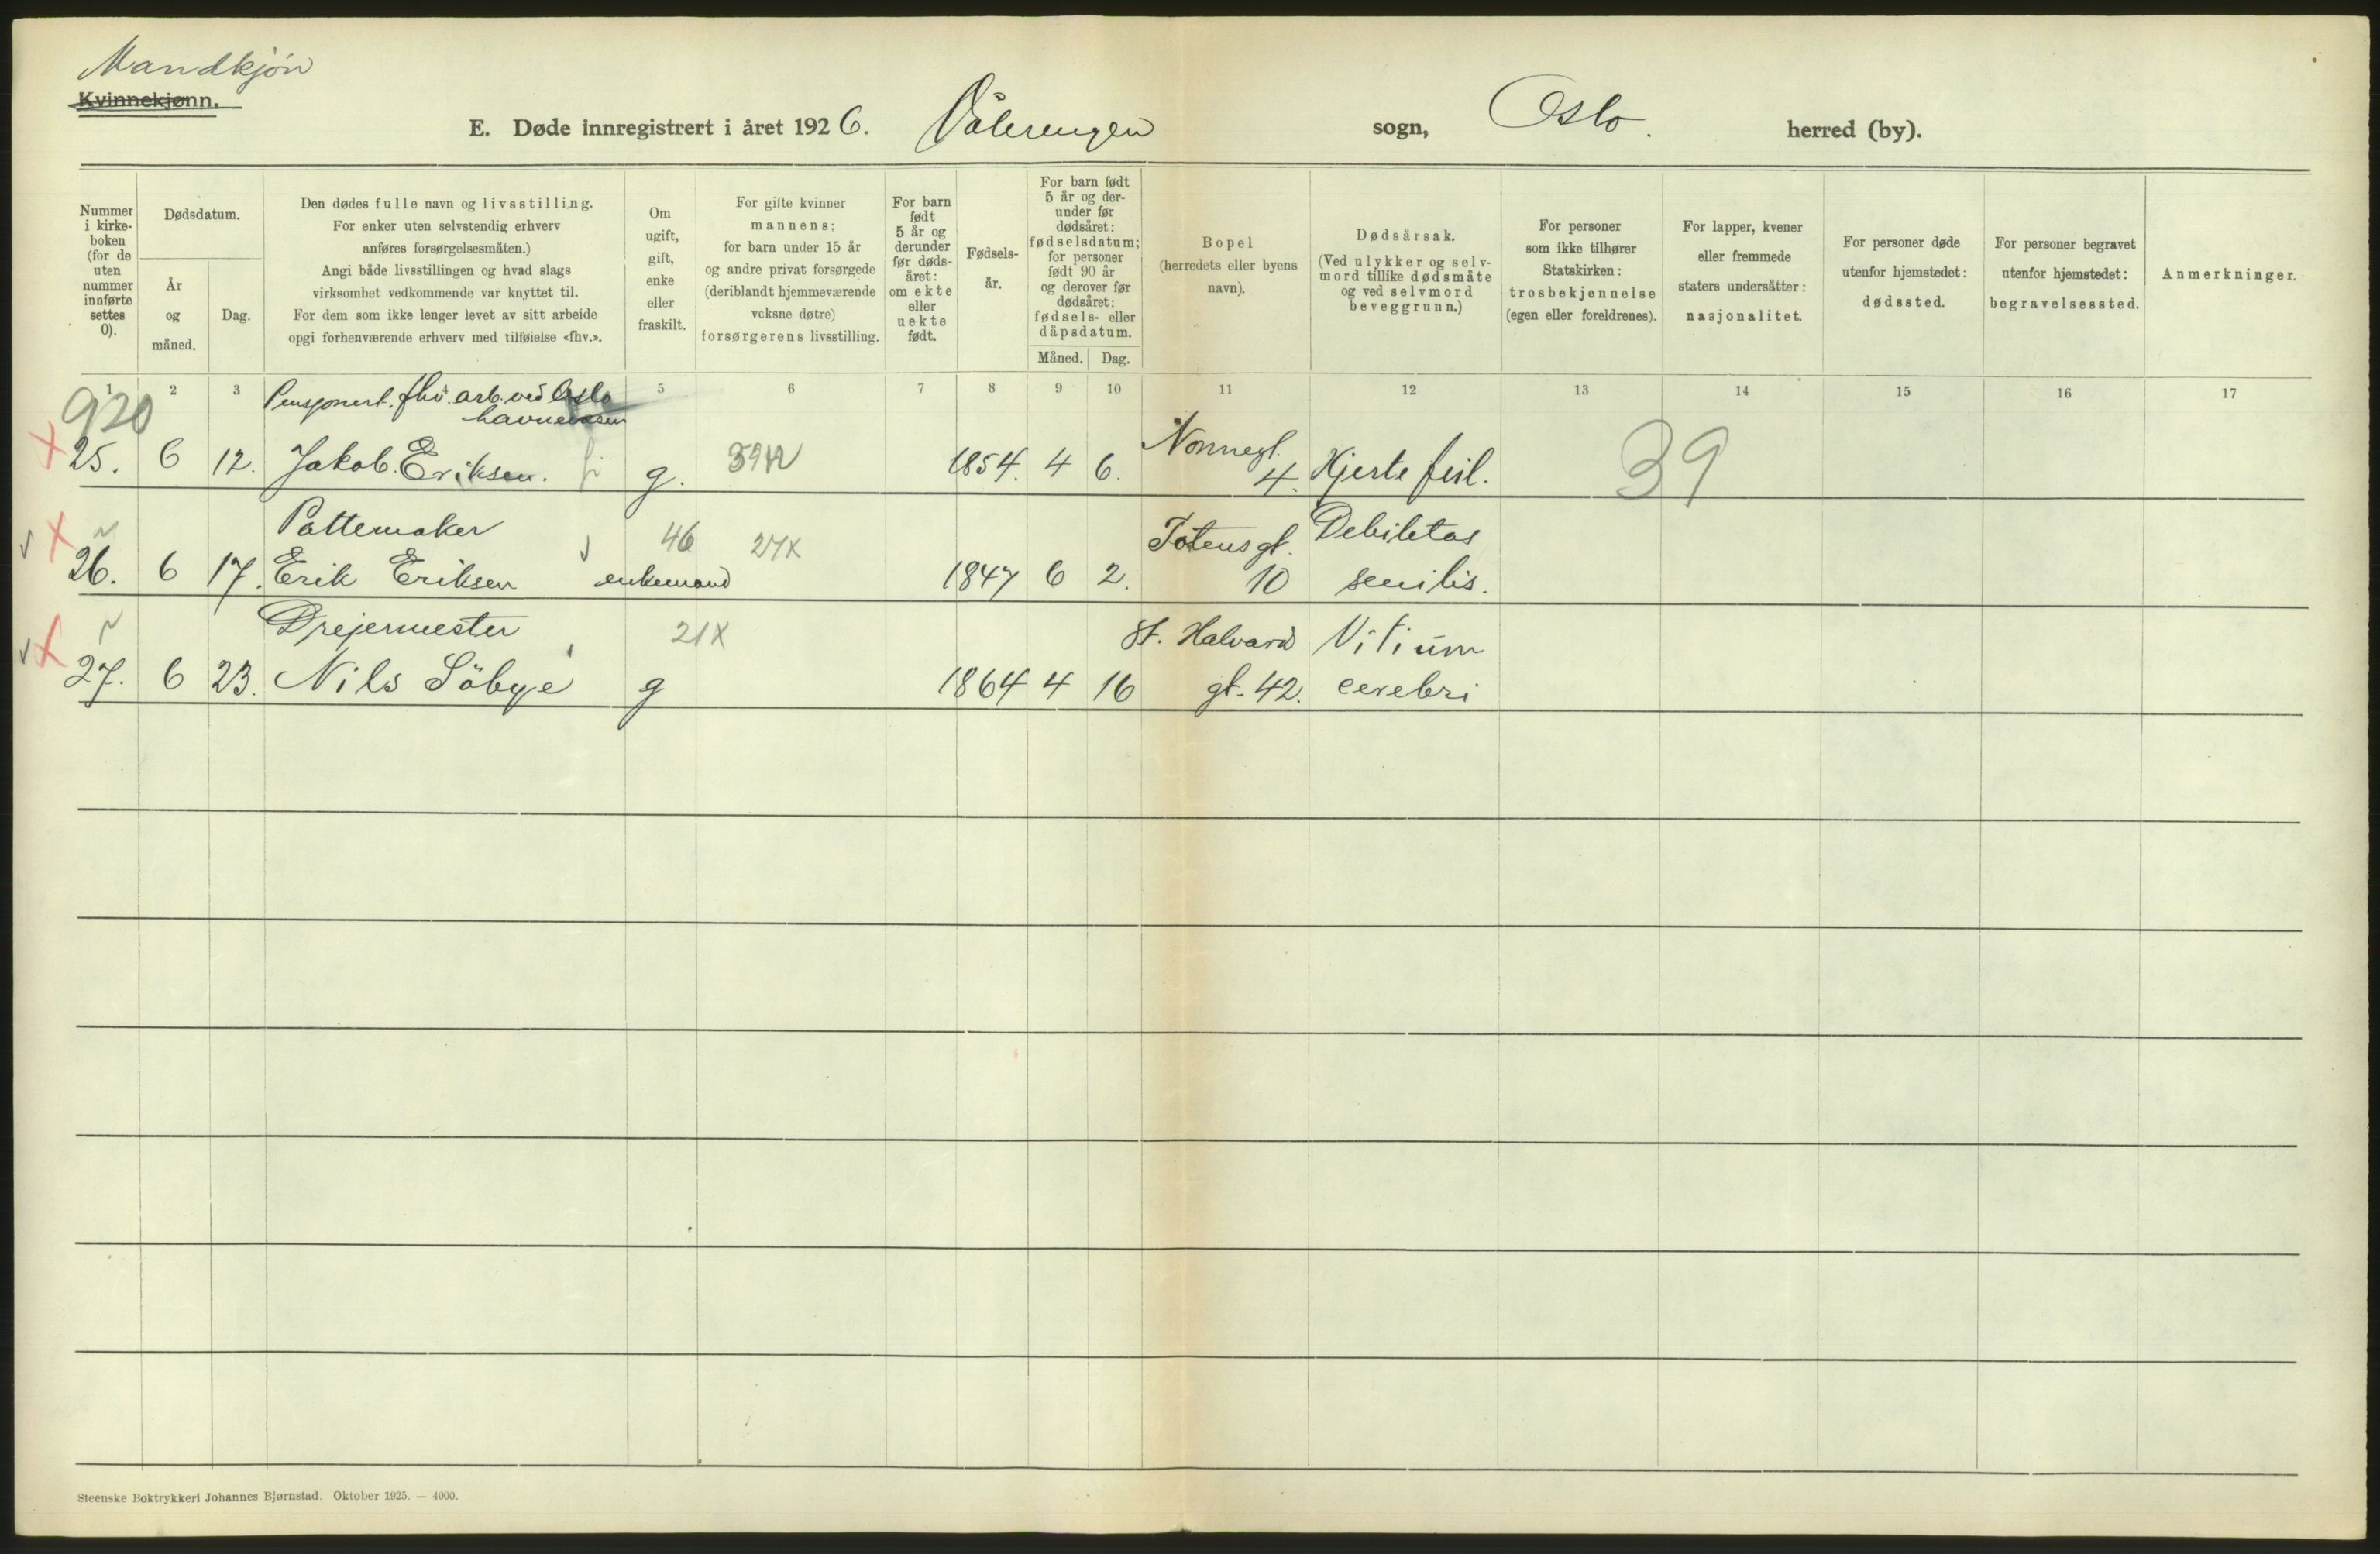 Mandkjön
Kvinnekjønn.
E. Døde innregistrert i året 1926. Vålerengen sogn, Oslo. herred (by).
Nummer i kirke-boken (for de uten nummer innførte settes 0).
Dødsdatum.
År og måned.
Dag.
Den dødes fulle navn og livsstilling.
For enker uten selvstendig erhverv
anføres forsørgelsesmåten.)
Angi både livsstillingen og hvad slags
virksomhet vedkommende var knyttet til.
For dem som ikke lenger levet av sitt arbeide
opgi forhenværende erhverv med tilføielse «fhv.».
Om ugift, gift, enke eller fraskilt.
For gifte kvinner
mannens;
for barn under 15 år
og andre privat forsørgede
(deriblandt hjemmeværende
voksne døtre)
forsørgerens livsstilling.
For barn født 5 år og derunder før døds-året: om ekte eller uekte født.
Fødsels-år.
For barn født
5 år og der-
under før
dødsåret:
fødselsdatum;
for personer
født 90 år
og derover før
dødsåret:
fødsels- eller
dåpsdatum.
Måned. Dag.
Bopel
(herredets eller byens
navn).
Dødsårsak.
(Ved ulykker og selv-
mord tillike dødsmåte
og ved selvmord
beveggrunn.)
For personer
som ikke tilhører
Statskirken:
trosbekjennelse
(egen eller foreldrenes).
For lapper, kvener
eller fremmede
staters undersåtter:
nasjonalitet.
For personer døde
utenfor hjemstedet:
dødssted.
For personer begravet
utenfor hjemstedet:
begravelsessted.
Anmerkninger.
1 2 3 4 5 6 7 8 9 10 11 12 13 14 15 16 17
920 Pensjonert. fhv. arb. ved Oslo
havnevesen
25. 6 12. Jakob. Eriksen. g. 1854. 4 6. Nonnegt. 4. Hjertefeil. 39
Pottemaker 46 27X Totensgt. Debilitas
26. 6 17. Erik Eriksen enkemand 1847 6 2. 10 senilis.
Drejermester 21X St. Halvards Vitium
27. 6 23. Nils Söbye g 1864 4 16 gt. 42. cerebri
Steenske Boktrykkeri Johannes Bjørnstad. Oktober 1925. — 4000.